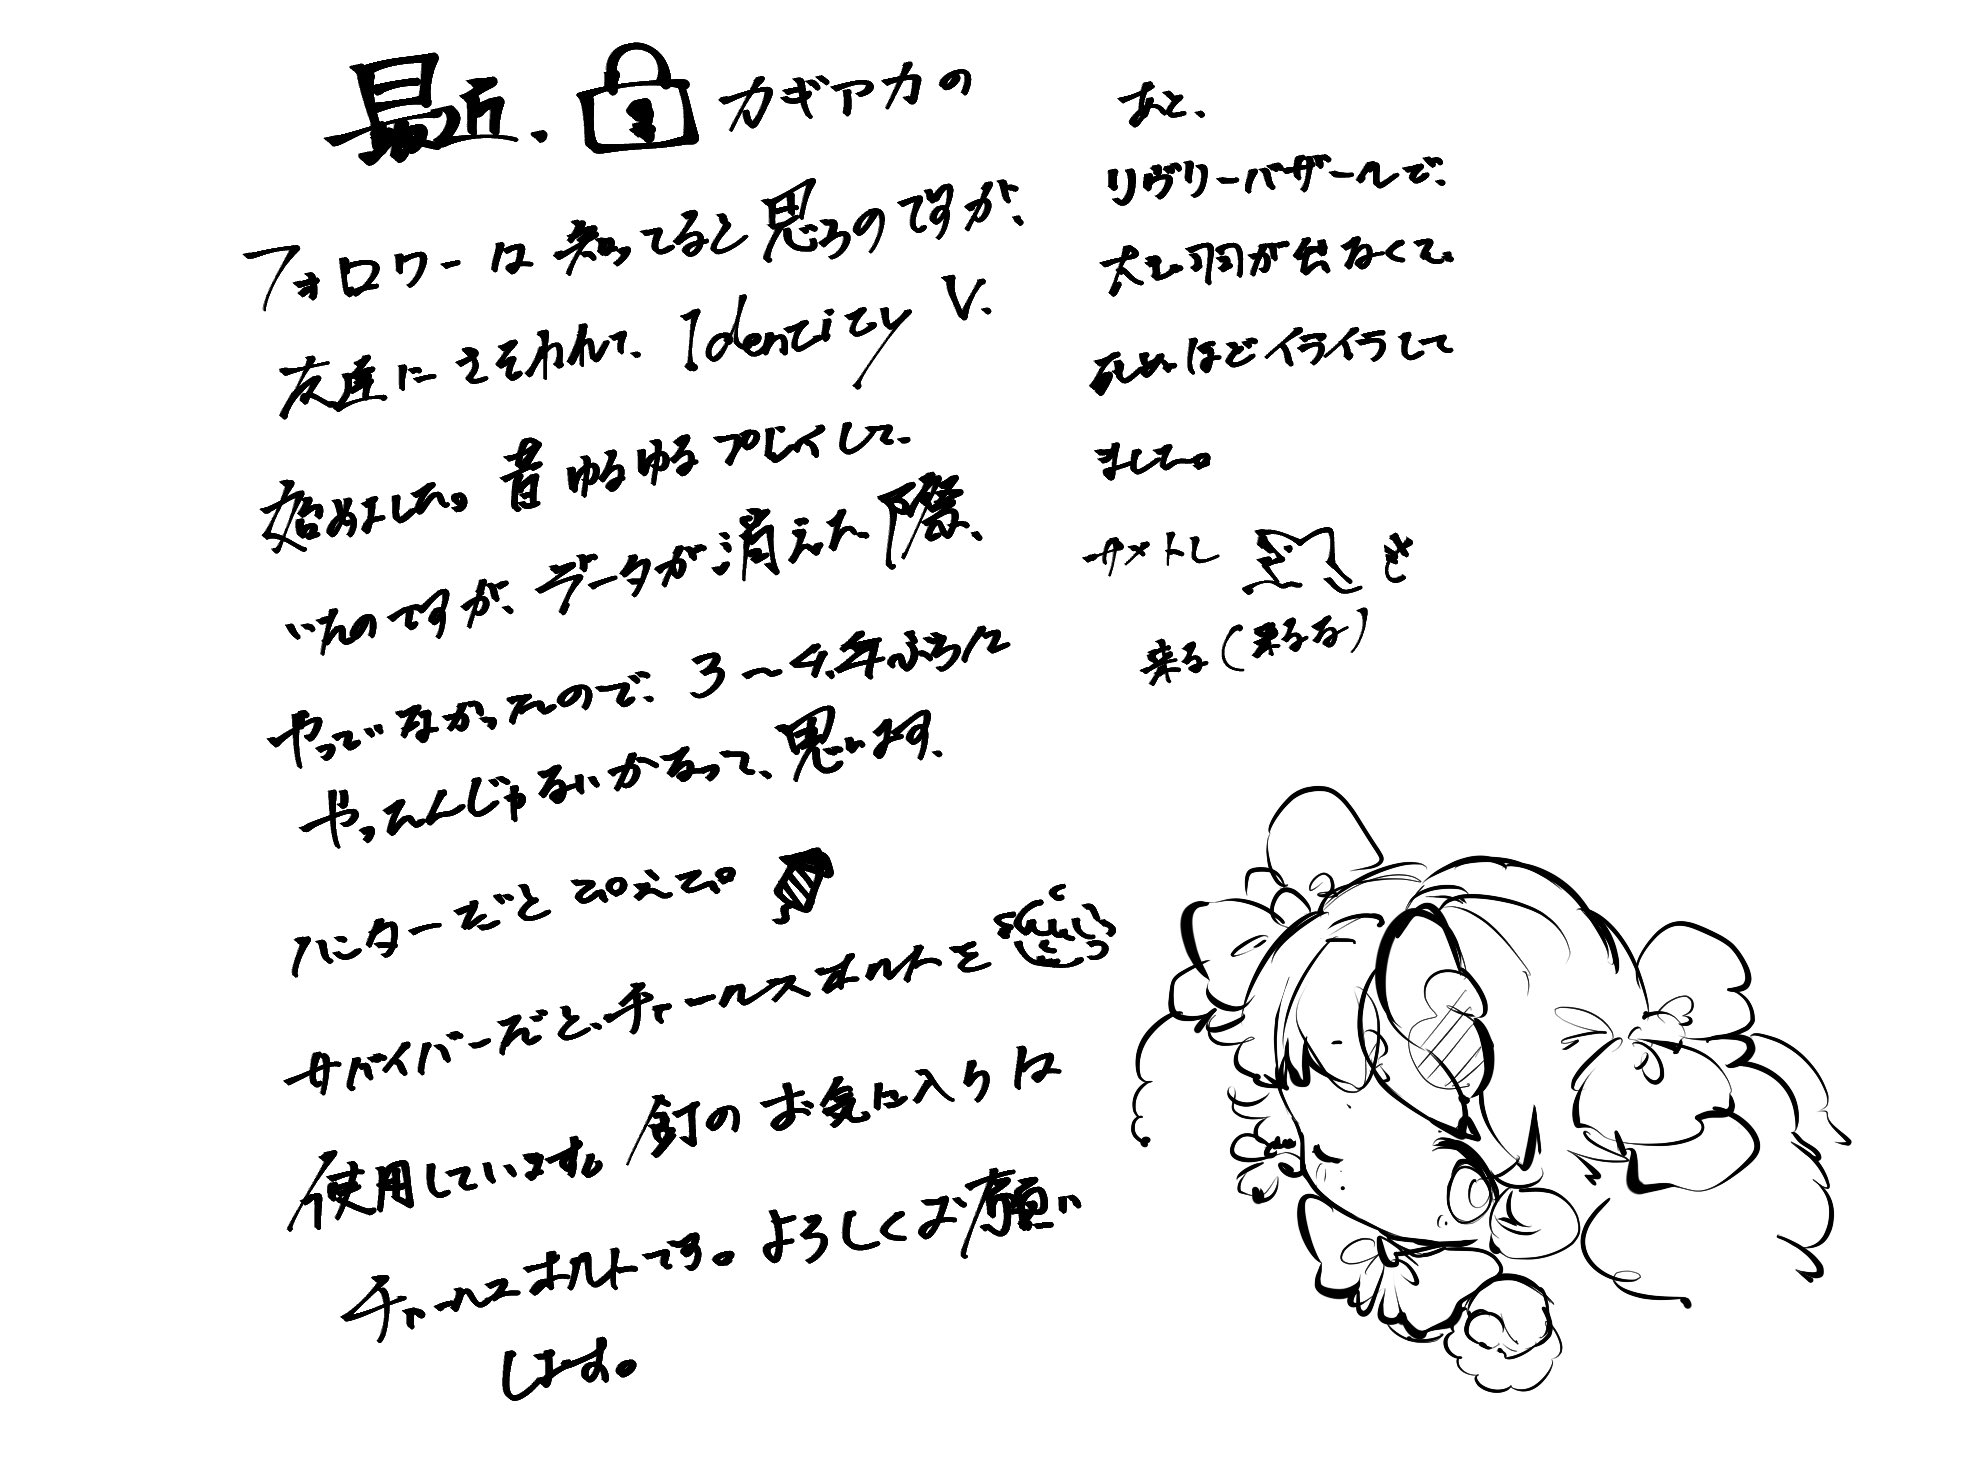 最近、カギアカの
フォロワーは知ってると思うのですが、
友達にさそわれて、Identity V、
始めました。昔ゆるゆるプレイして、
いたのですが、データが消えた際、
やってなかったので、3〜4年ぶりに
やったんじゃないかなって、思います、
ハンターだと ぴえぴ
サバイバーだと、チャールズホルトを
使用しています。釘のお気に入りは
チャールズホルトです。よろしくお願い
します。
あと、
リヴリーバザールで、
犬モ羽が出なくて、
死ぬほどイライラして
ました。
サメトし
来る(来るな)